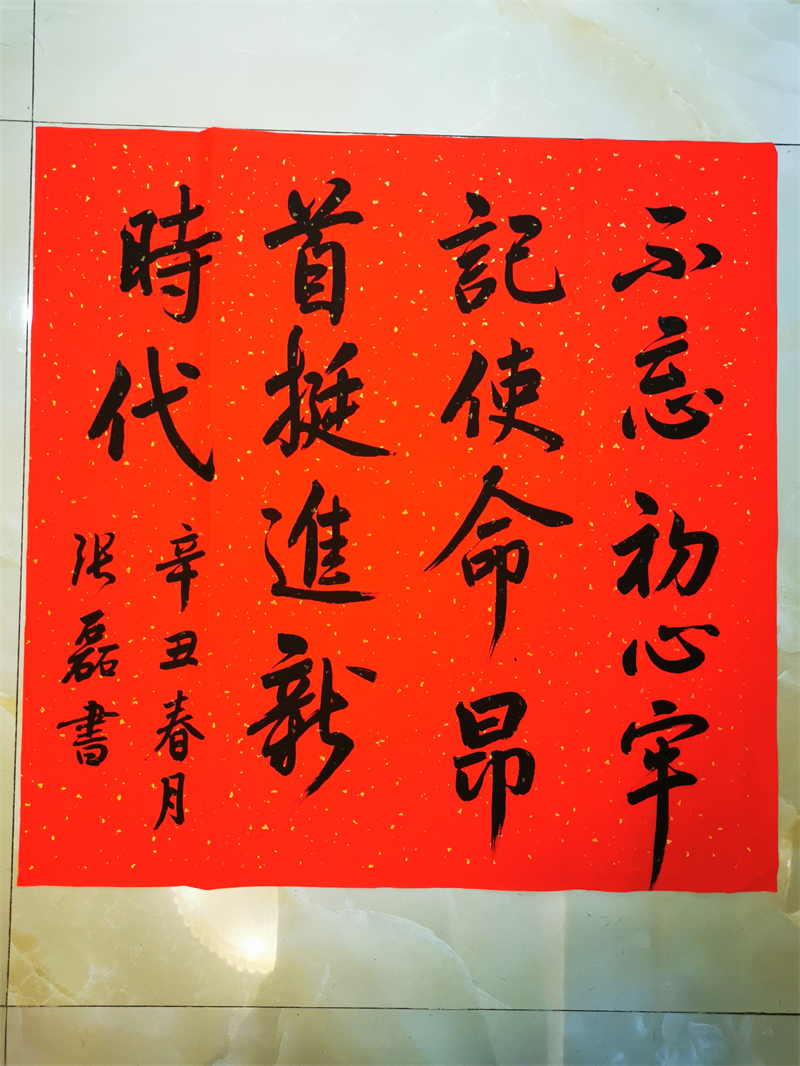 不忘初心牢
記使命昂
首挺進新
時代
辛丑春月
张磊書